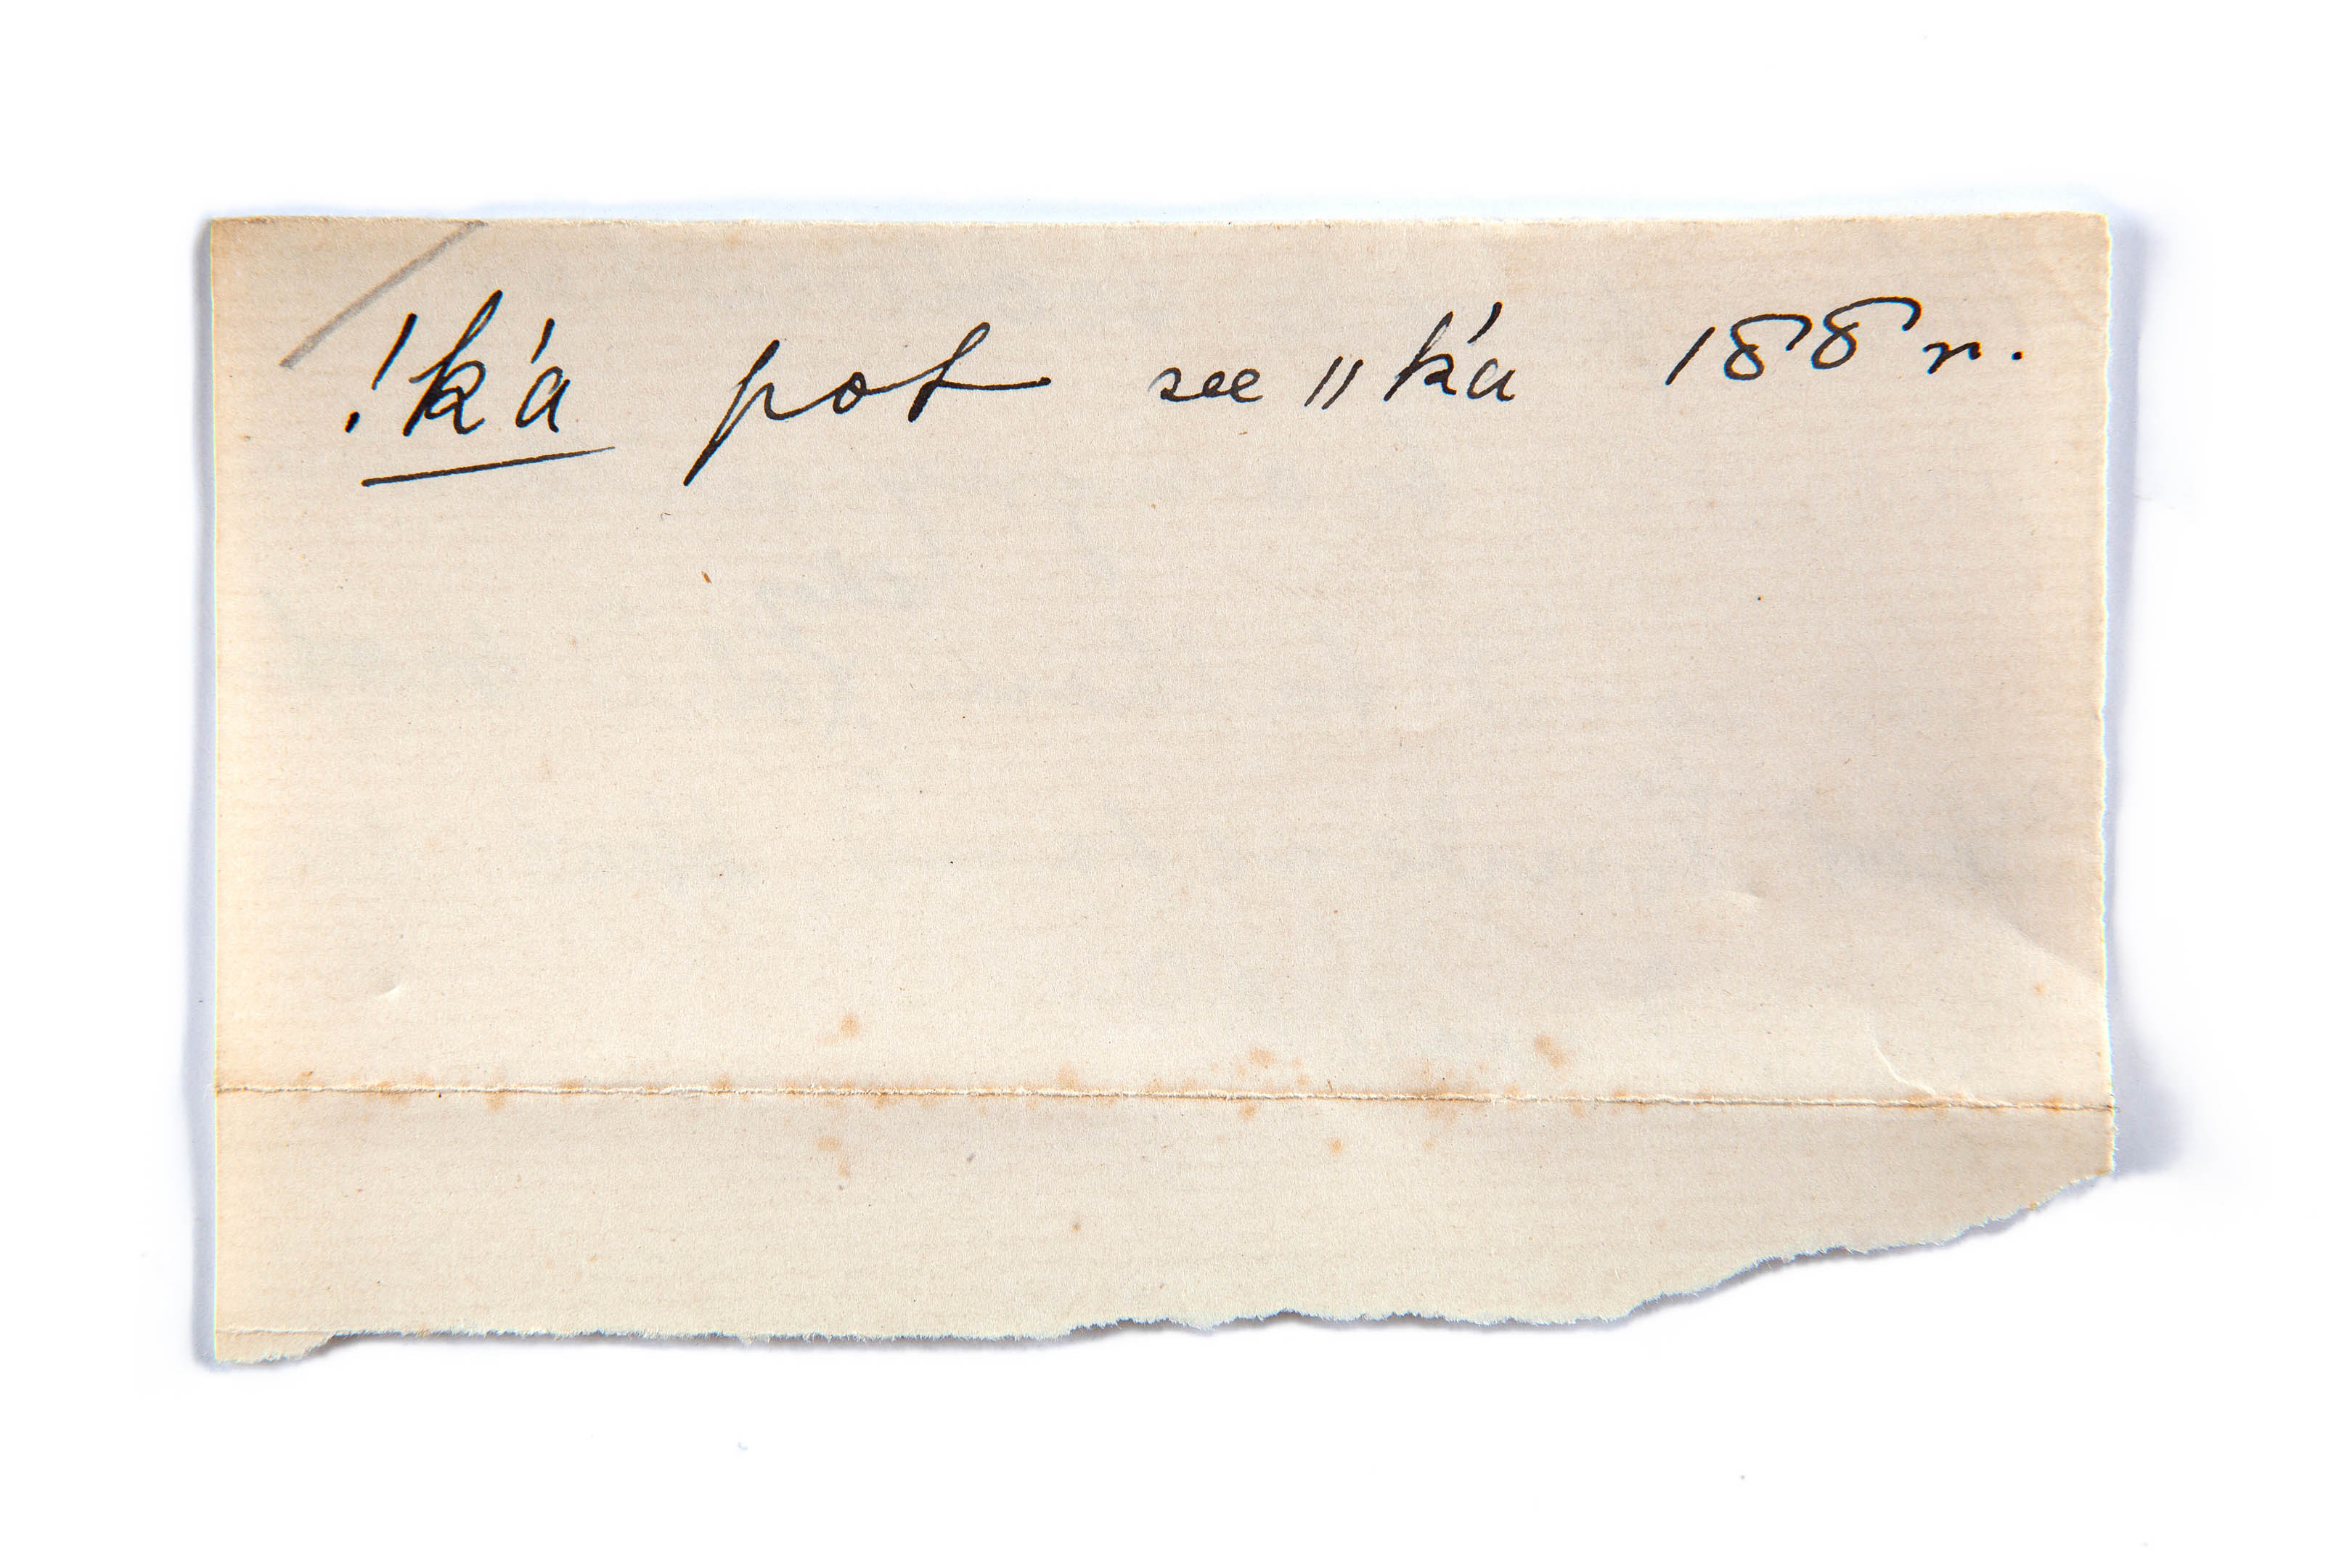 !k'a pot see ‖k'a 188 r.